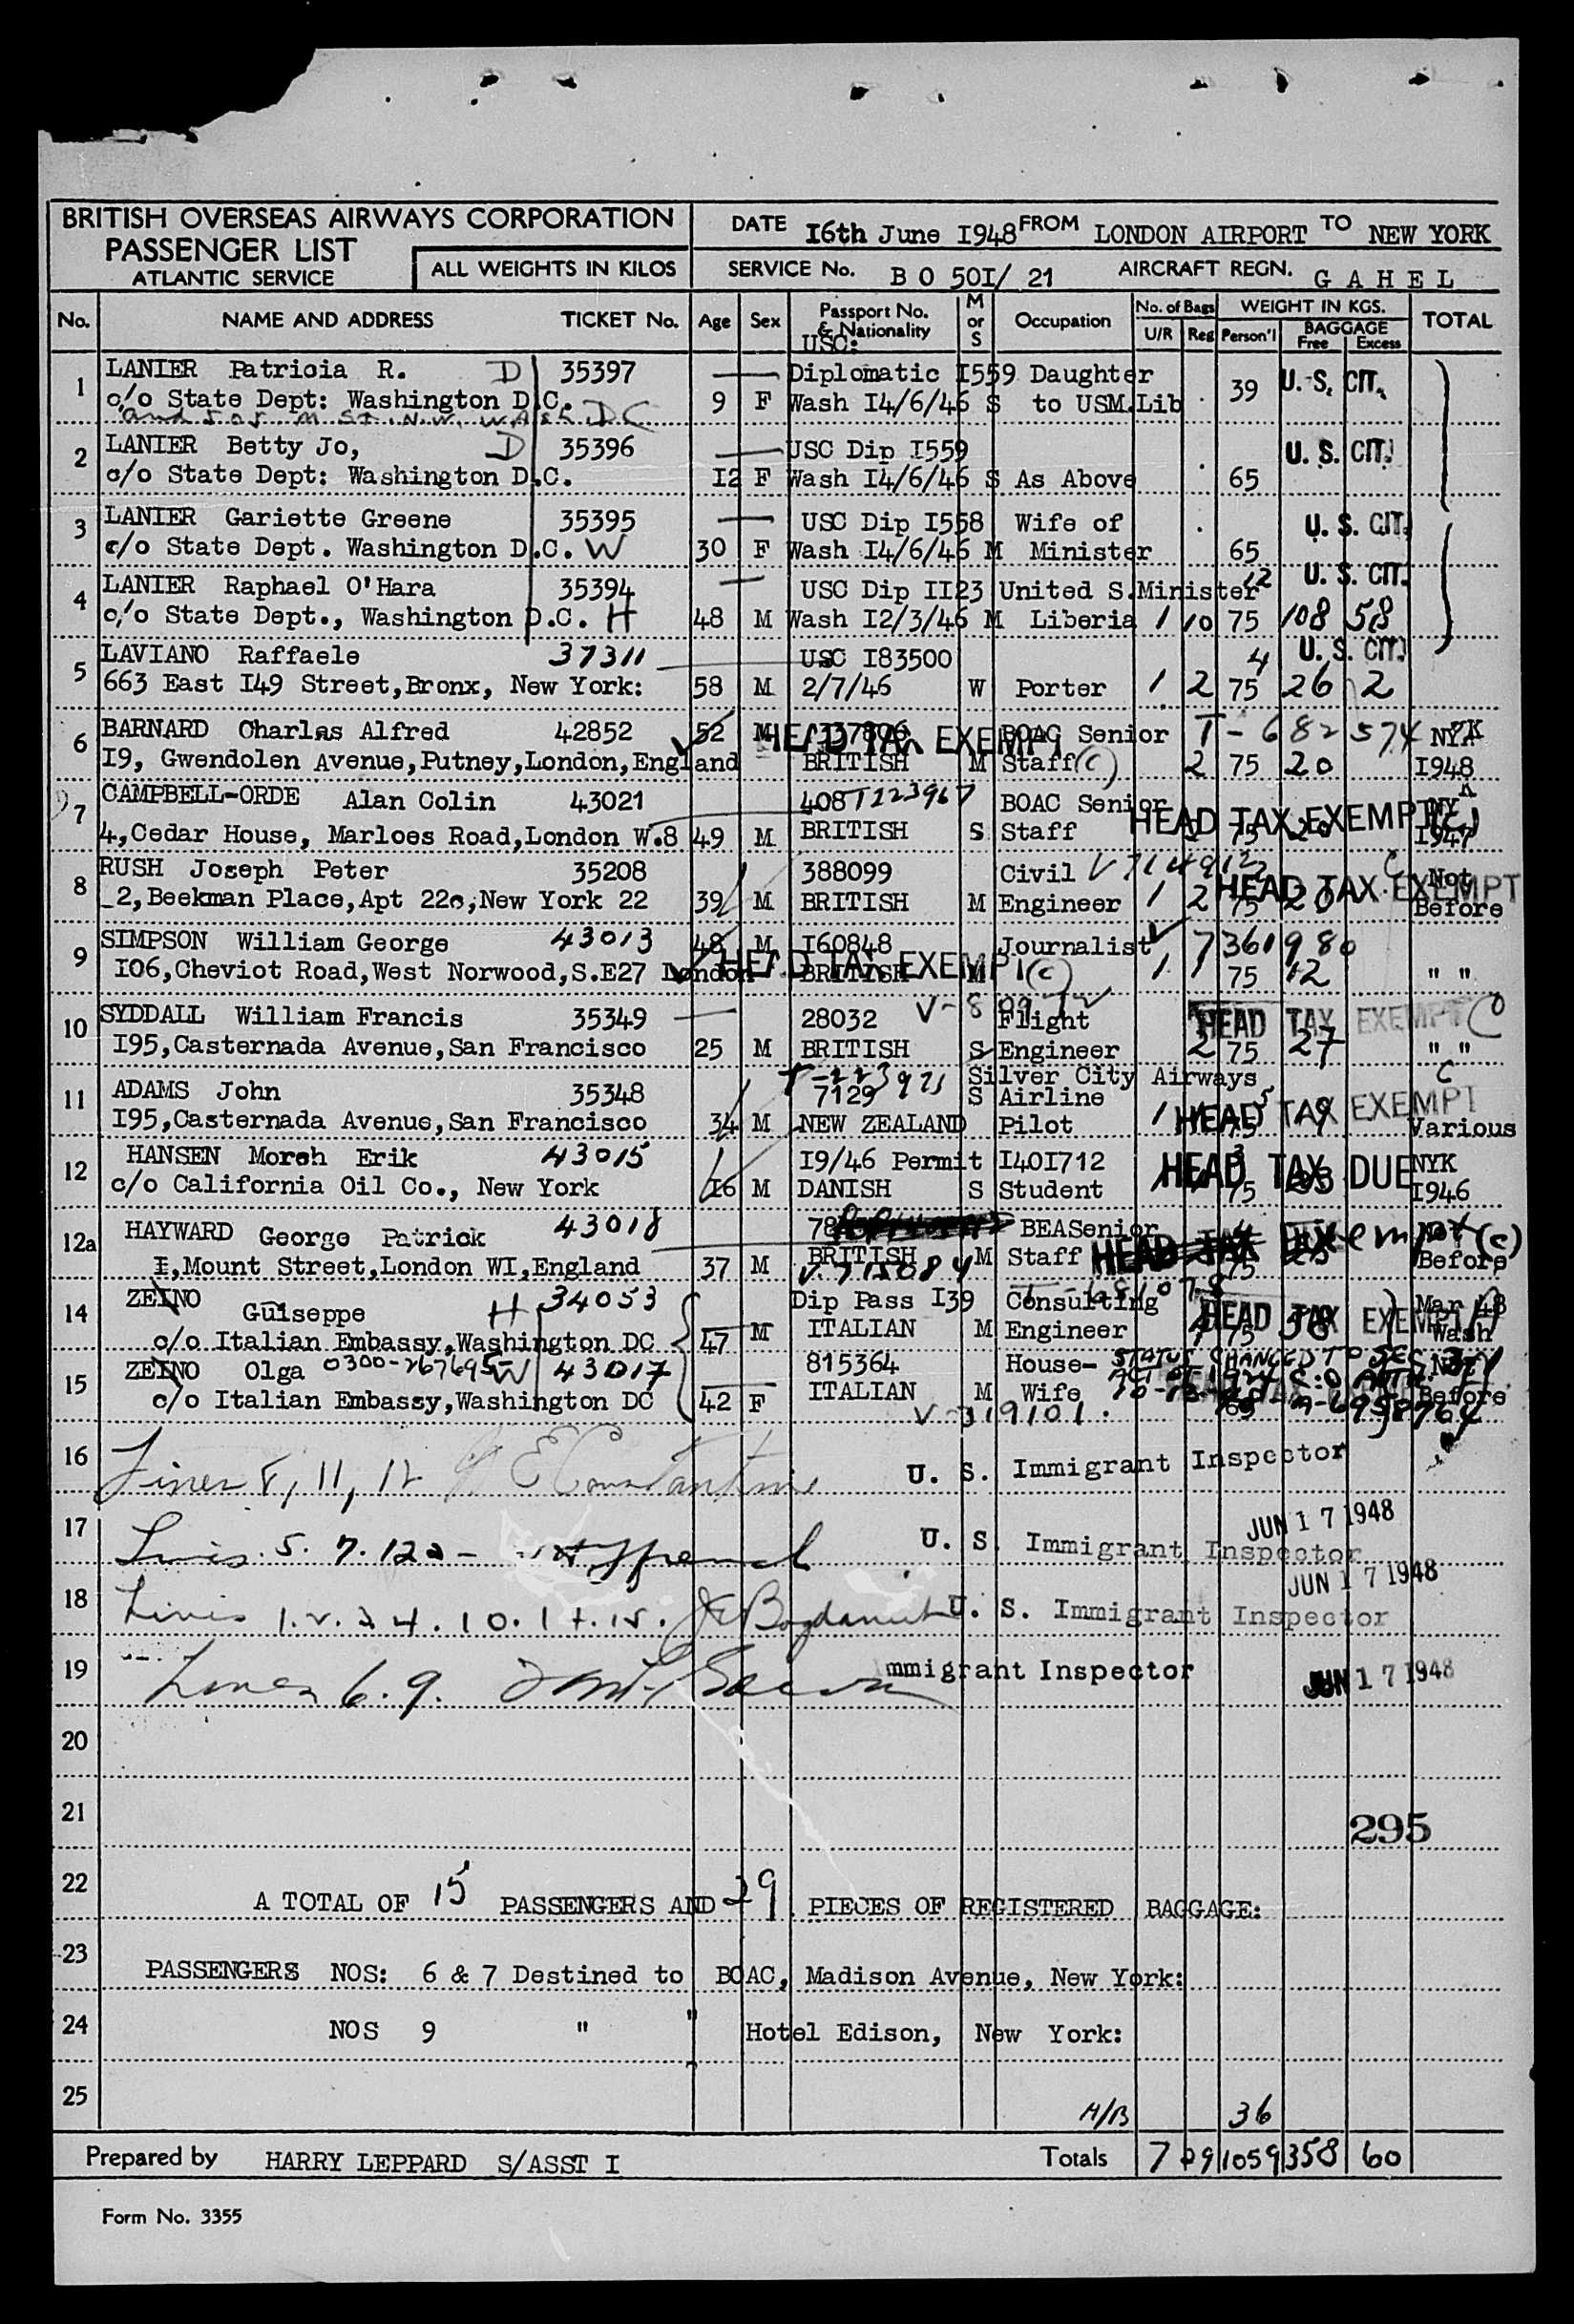 BRITISH OVERSEAS AIRWAYS CORPORATION
PASSENGER LIST
ATLANTIC SERVICE
ALL WEIGHTS IN KILOS
DATE 16th June 1948 FROM LONDON AIRPORT TO NEW YORK
SERVICE No. B O 501/ 21 AIRCRAFT REGN. G A H E L
No. NAME AND ADDRESS TICKET No. Age Sex Passport No. & Nationality M or S Occupation No. of Bags U/R Reg WEIGHT IN KGS. Person'l BAGGAGE Free Excess TOTAL
USC:
1 LANIER Patricia R. D 35397 Diplomatic 1559 Daughter 39 U. S. CIT.
c/o State Dept: Washington D.C. 9 F Wash 14/6/46 S to USM.Lib
2 LANIER Betty Jo, D 35396 USC Dip 1559 U. S. CIT.
c/o State Dept: Washington D.C. 12 F Wash 14/6/46 S As Above 65
3 LANIER Gariette Greene 35395 USC Dip 1558 Wife of U. S. CIT.
c/o State Dept. Washington D.C. W 30 F Wash 14/6/46 M Minister 65
4 LANIER Raphael O'Hara 35394 USC Dip 1123 United S.Minister 12 U. S. CIT.
c/o State Dept., Washington D.C. H 48 M Wash 12/3/46 M Liberia 1 10 75 108 58
5 LAVIANO Raffaele 37311 USC 183500 4 U. S. CIT.
663 East 149 Street,Bronx, New York: 58 M 2/7/46 W Porter 1 2 75 26 2
6 BARNARD Charles Alfred 42852 52 M HEAD TAX EXEMPT BOAC Senior T-682574 NYK
19, Gwendolen Avenue,Putney,London,England BRITISH M Staff (C) 2 75 20 1948
7 CAMPBELL-ORDE Alan Colin 43021 408 T223967 BOAC Senior HEAD TAX EXEMPT (C) NYK
4,Cedar House, Marloes Road,London W.8 49 M BRITISH S Staff 75 20 1947
8 RUSH Joseph Peter 35208 388099 Civil HEAD TAX EXEMPT C Not
2,Beekman Place,Apt 22c,New York 22 39 M BRITISH M Engineer 1 2 75 20 Before
9 SIMPSON William George 43013 48 M 160848 Journalist V 7361980
106,Cheviot Road,West Norwood,S.E27 London HEAD TAX EXEMPT (C) BRITISH 1 75 12 " "
10 SYDDALL William Francis 35349 28032 Flight HEAD TAX EXEMPT C
195,Casternada Avenue,San Francisco 25 M BRITISH S Engineer 2 75 27 " "
Silver City Airways
11 ADAMS John 35348 T-223921 7129 S Airline HEAD TAX EXEMPT C
195,Casternada Avenue,San Francisco 34 M NEW ZEALAND Pilot 1 Various
12 HANSEN Morch Erik 43015 19/46 Permit 1401712 HEAD TAX DUE NYK
c/o California Oil Co., New York 16 M DANISH S Student 75 1946
12a HAYWARD George Patrick 43018 BEASenior HEAD TAX Exempt (c) Not
1,Mount Street,London W1,England 37 M BRITISH V.715084 M Staff 75 Before
14 ZEINO Guiseppe H 34053 Dip Pass 139 Consulting HEAD TAX EXEMPT Mar 48
c/o Italian Embassy,Washington DC 47 M ITALIAN M Engineer 75 38 Wash
15 ZEINO Olga 0300-267695 W 43017 815364 House- STATUS CHANGED TO SEC. Not
c/o Italian Embassy,Washington DC 42 F ITALIAN M Wife 65 Before
V-319101.
16 Lines 8, 11, 12 U. S. Immigrant Inspector
17 Lines 5. 7. 12a - U. S. Immigrant Inspector JUN 17 1948
JUN 17 1948
18 Lines 1. 2. 3 4. 10. 14. 15. U. S. Immigrant Inspector
19 Lines 6. 9. Immigrant Inspector JUN 17 1948
20
21 295
22 A TOTAL OF 15 PASSENGERS AND 29 PIECES OF REGISTERED BAGGAGE:
23 PASSENGERS NOS: 6 & 7 Destined to BOAC, Madison Avenue, New York:
24 NOS 9 " " Hotel Edison, New York:
25 H/B 36
Prepared by HARRY LEPPARD S/ASST I Totals 7 29 1059 358 60
Form No. 3355